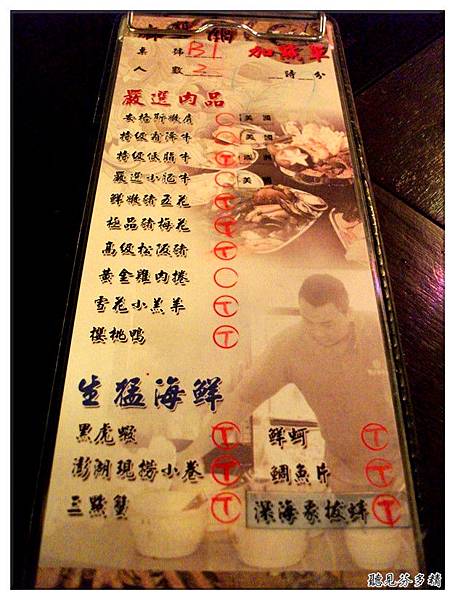 桌 號 B1 加點單
人 數 2 __時__分
嚴選肉品
安格斯嫩肩 美國
特級霜降牛
特級低脂牛
嚴選小肥牛 美
鮮嫩豬五花
極品豬梅花
高級松阪豬
黃金雞肉捲
雪花小羔羊
櫻桃鴨
生猛海鮮
黑虎蝦 鮮蚵
澎湖現撈小卷 鯛魚片
三點蟹 深海象拔蚌
聽見芬多精